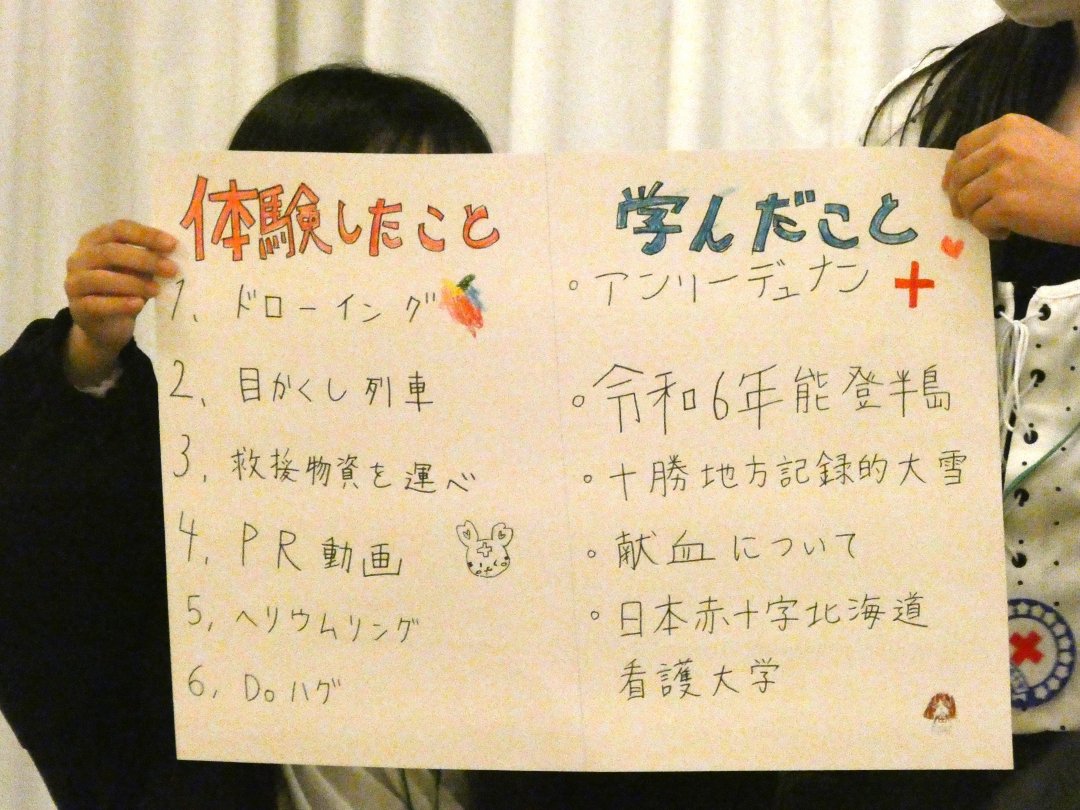 体験したこと
1、ドローイング
2、目かくし列車
3、救援物資を運べ
4、PR動画
5、ヘリウムリング
6、Doハグ
学んだこと
。アンリーデュナン
。令和6年能登半島
。十勝地方記録的大雪
。献血について
。日本赤十字北海道
看護大学